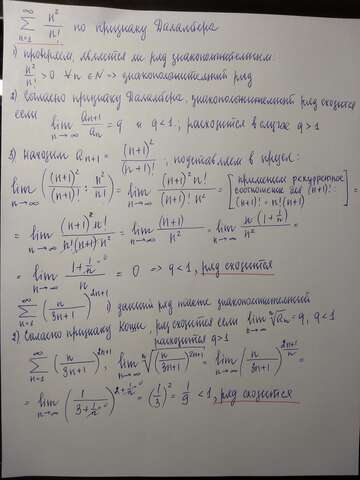 ∞ Σ n=1 n²/n! по признаку Даламбера
1) проверяем, является ли ряд знакоположительным:
n²/n! > 0 ∀ n ∈ N => знакоположительный ряд
2) Согласно признаку Даламбера, знакоположительный ряд сходится
если lim n→∞ aₙ₊₁/aₙ = q и q < 1; расходится в случае q > 1
3) находим aₙ₊₁ = (n+1)²/(n+1)! ; подставляем в предел:
lim n→∞ ((n+1)²/(n+1)! : n²/n!) = lim n→∞ (n+1)² n!/(n+1)! n² = [применяем рекуррентное соотношение для (n+1)! : (n+1)! = n!(n+1)] =
= lim n→∞ (n+1)² n!/n!(n+1) n² = lim n→∞ (n+1)/n² = lim n→∞ n(1+1/n)/n² =
= lim n→∞ (1+1/n→0)/n = 0 => q < 1, ряд сходится
∞ Σ n=1 (n/(3n+1))²ⁿ⁺¹ 1) данный ряд также знакоположительный
2) Согласно признаку Коши, ряд сходится если lim n→∞ ⁿ√aₙ = q, q < 1
расходится q > 1
∞ Σ n=1 (n/(3n+1))²ⁿ⁺¹, lim n→∞ ⁿ√(n/(3n+1))²ⁿ⁺¹ = lim n→∞ (n/(3n+1))^((2n+1)/n) =
= lim n→∞ (1/(3+1/n→0))^(2+1/n→0) = (1/3)² = 1/9 < 1, ряд сходится